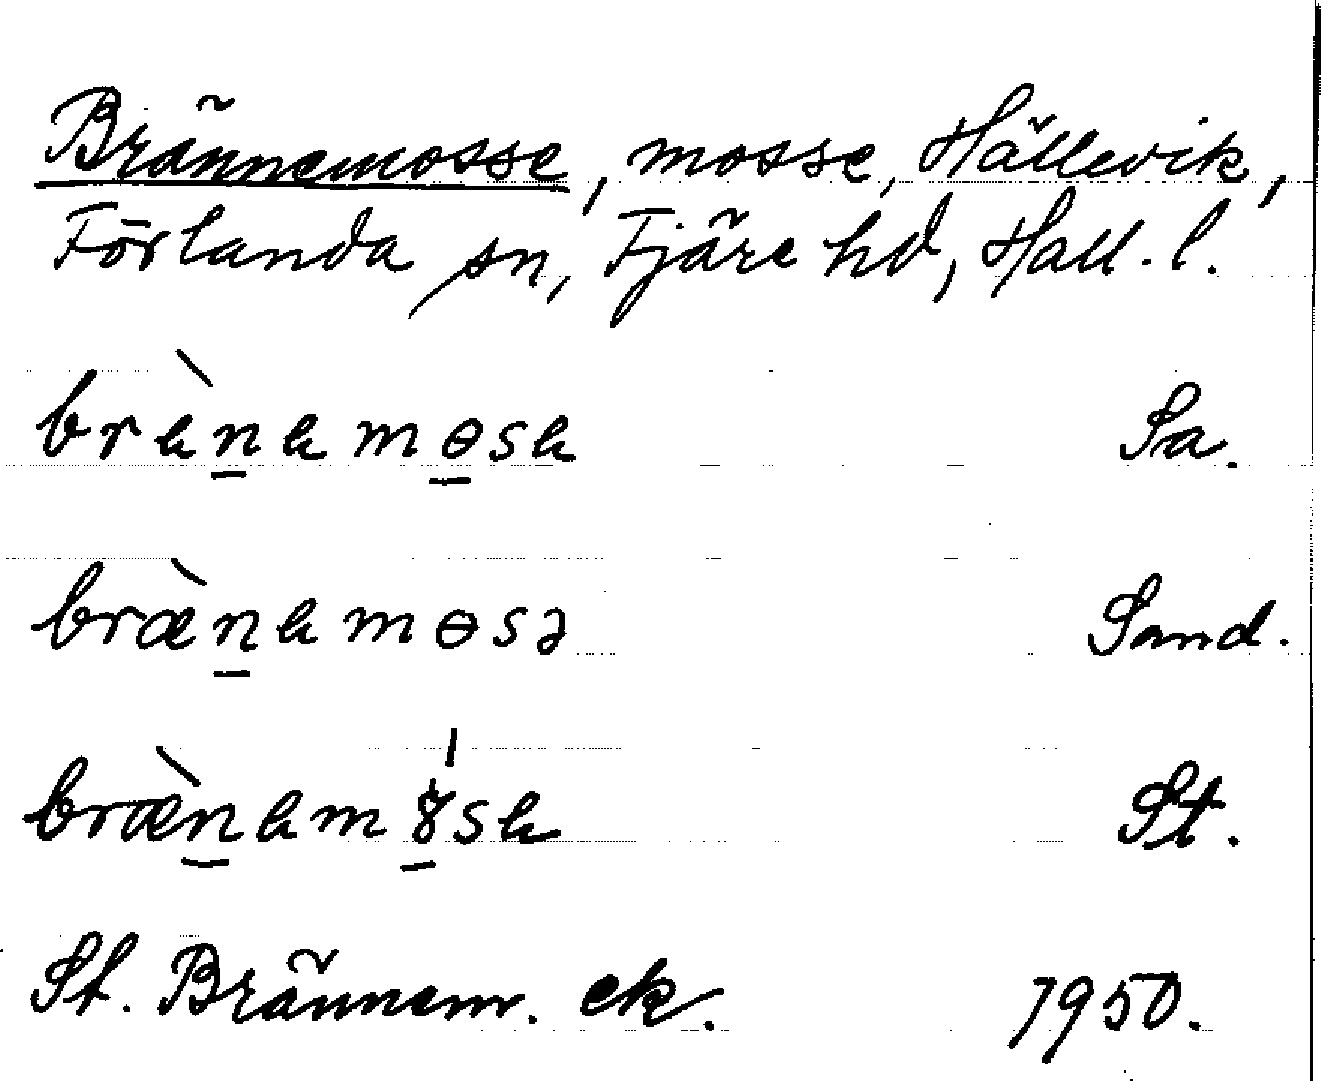 Brännemosse, mosse, Hällevik,
Förlanda sn, Fjäre hd, Hall. l.
brὲn̲amɵ̲sa Sa.
bræ̀n̲amɵsə Sand.
bræ̀n̲am St.
St. Brännem. ek. 1950.